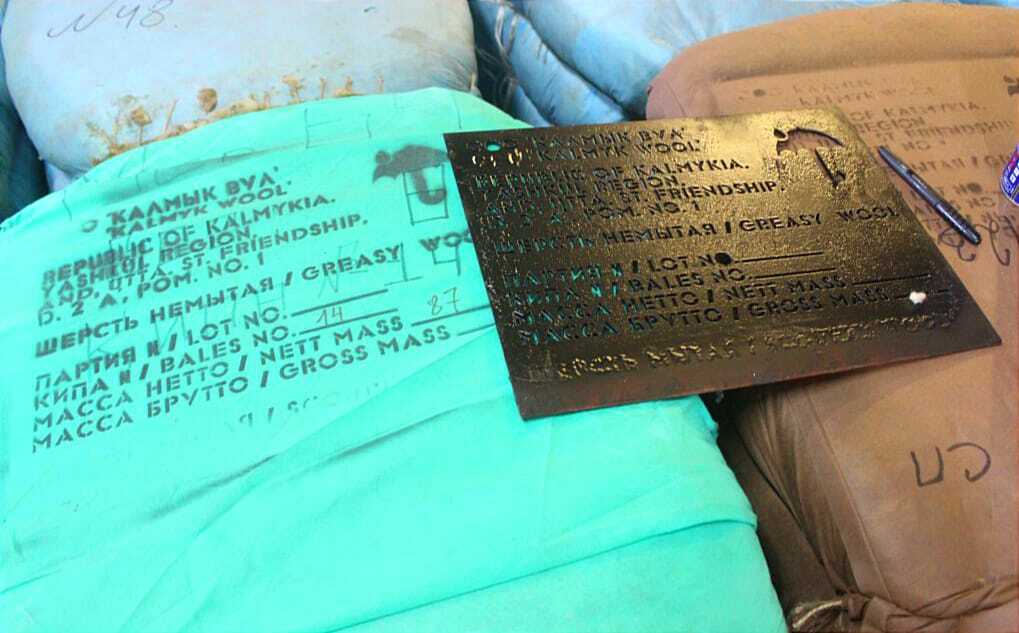 N48.
"КАЛМЫК ВУЛ"
"KALMYK WOOL"
REPUBLIC OF KALMYKIA.
YASHKUL REGION
AND, UTTA, ST. FRIENDSHIP.
D. 2 A, POM. NO. 1
ШЕРСТЬ НЕМЫТАЯ / GREASY WOOL
ПАРТИЯ N / LOT NO.
КИПА N / BALES NO. 14
МАССА НЕТТО / NETT MASS 87
МАССА БРУТТО / GROSS MASS
"КАЛМЫК ВУЛ"
"KALMYK WOOL"
REPUBLIC OF KALMYKIA.
REGION
UTTA, ST. FRIENDSHIP.
D. 2 A, POM. NO. 1
ШЕРСТЬ НЕМЫТАЯ / GREASY WOOL
ПАРТИЯ N / LOT NO.
КИПА N / BALES NO.
МАССА НЕТТО / NETT MASS
МАССА БРУТТО / GROSS MASS
ШЕРСТЬ МЫТАЯ /
КАЛМЫК
KALMYK
OF KALMYKIA.
REGION
FRIENDSHIP.
LOT NO.
СП